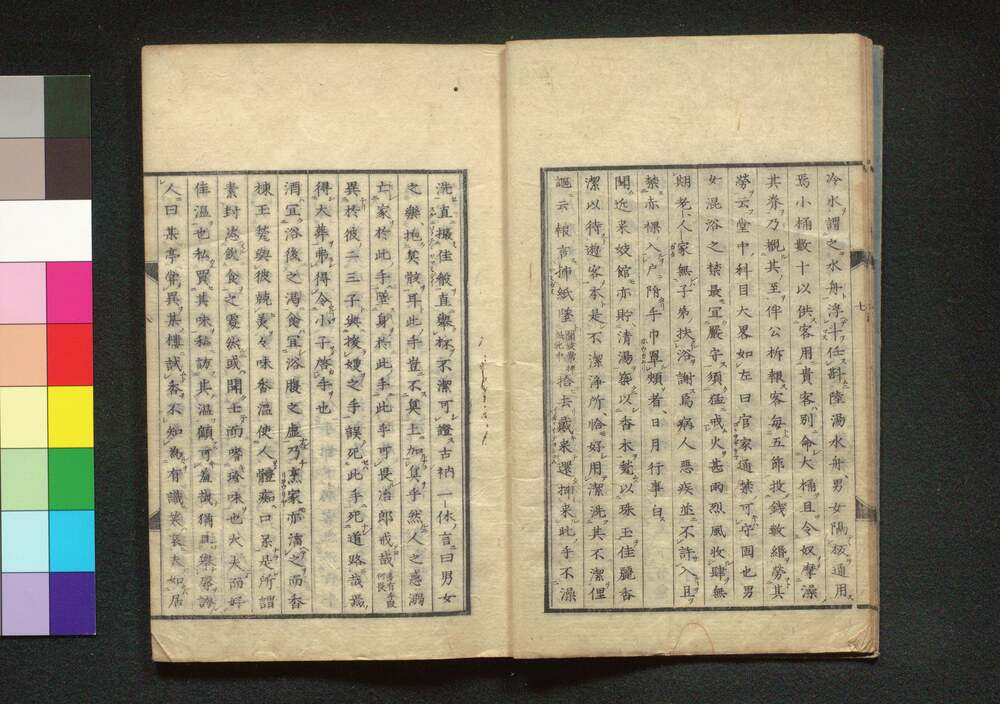 冷水謂之水舟浮斗任斟陸湯水舟男女隔板通用
焉小桶數十以供客用貴客別命大桶且令奴摩澡
其脊乃觀其至伴公柝報客每五節投錢數緡勞其
勞云堂中科目大畧如左曰官家通禁可守固也男
女混浴之禁最宜嚴守須猛戒火甚雨烈風收肆無
期老人家無子弟扶浴謝焉病人惡疾並不許入且
禁赤裸入戶附手巾罩頰者月日行事白
聞近來娼館亦貯清湯藥以香水甃以珠玉佳麗香
潔以待遊客本是不潔淨所恰好用潔洗其不潔俚
謳云報言挿紙
捨去歲來還挿來此手不澡
七
洗直撮佳殽直擧杯不潔可證古衲一休言曰男女
之樂抱臭骸耳此手豈不臭上加臭乎然人之惑溺
亡家於此手墜身於此手此手可畏冶郎戒哉
異於彼二三子與援嫂之手誤死此手死道路哉
得大葬弗得令小子啓手也
酒宜浴後之渴食宜浴腹之虛乃烹家亦滿之而香
棟玉甃與彼競美々味香溫使人體痴口呆是所謂
素封恣飲食之處然或聞士而嗜
味也火夫而好
佳溫也私買其味私訪其溫顧可羞哉猶且擧
人曰某亭常異某樓試客不知爲有識
夫如居